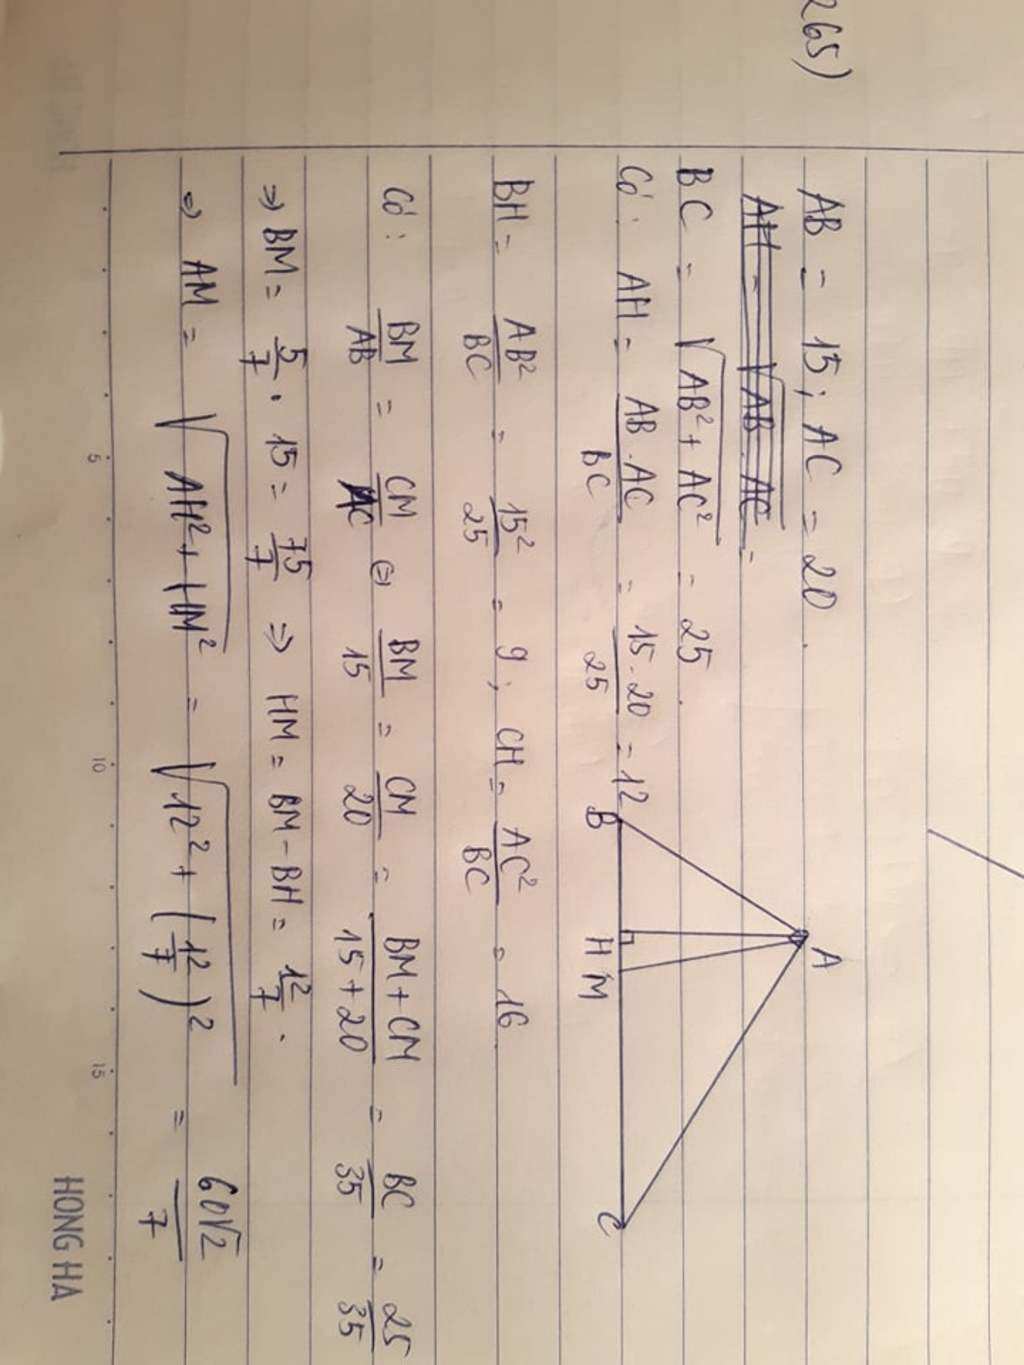 265)
AB = 15; AC = 20.
AH = √AB.AC =
BC = √AB² + AC² = 25.
Có: AH = AB.AC/BC = 15.20/25 = 12
A
B H M C
BH = AB²/BC = 15²/25 = 9; CH = AC²/BC = 16.
Có: BM/AB = CM/AC ⇔ BM/15 = CM/20 = BM+CM/15+20 = BC/35 = 25/35
⇒ BM = 5/7 . 15 = 75/7 ⇒ HM = BM - BH = 12/7.
⇒ AM = √AH² + HM² = √12² + (12/7)² = 60√2/7
5 10 15
HONG HA